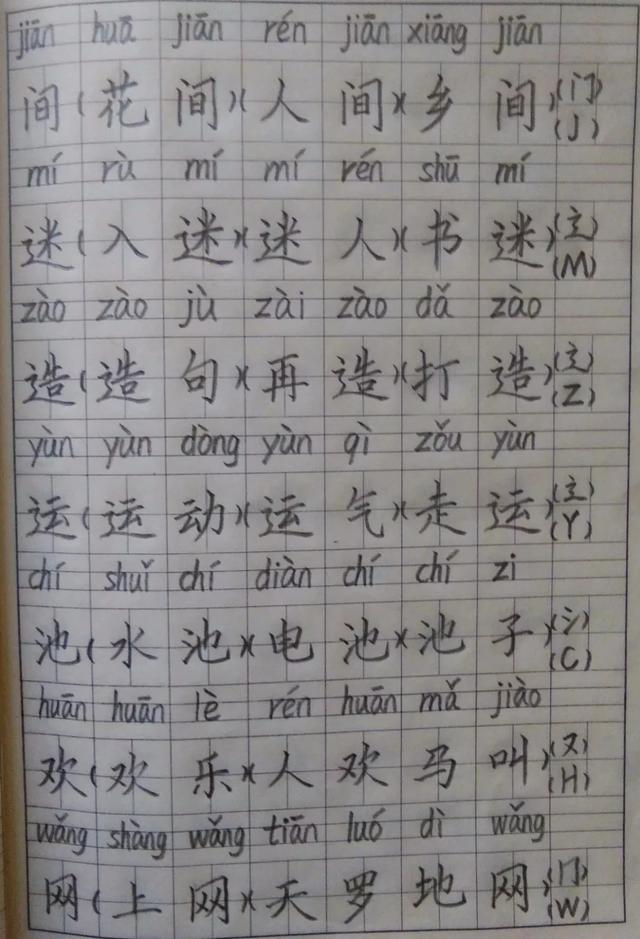 jiān huā jiān rén jiān xiāng jiān
间(花间)(人间)(乡间)(门)(J)
mí rù mí mí rén shū mí
迷(入迷)(迷人)(书迷)(辶)(M)
zào zào jù zài zào dǎ zào
造(造句)(再造)(打造)(辶)(Z)
yùn yùn dòng yùn qì zǒu yùn
运(运动)(运气)(走运)(辶)(Y)
chí shuǐ chí diàn chí chí zi
池(水池)(电池)(池子)(氵)(C)
huān huān lè rén huān mǎ jiào
欢(欢乐)(人欢马叫)(又)(H)
wǎng shàng wǎng tiān luó dì wǎng
网(上网)(天罗地网)(冂)(W)